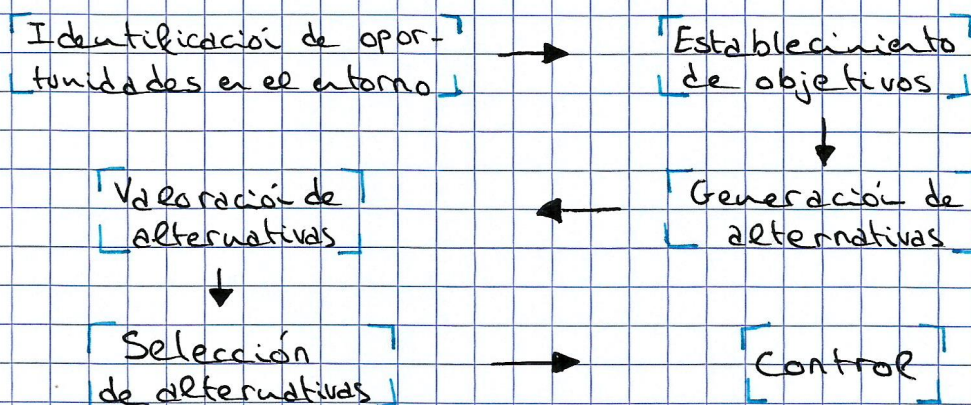 Identificación de opor-
tunidades en el entorno
Establecimiento
de objetivos
Generación de
alternativas
Valoración de
alternativas
Selección
de alternativas
Control